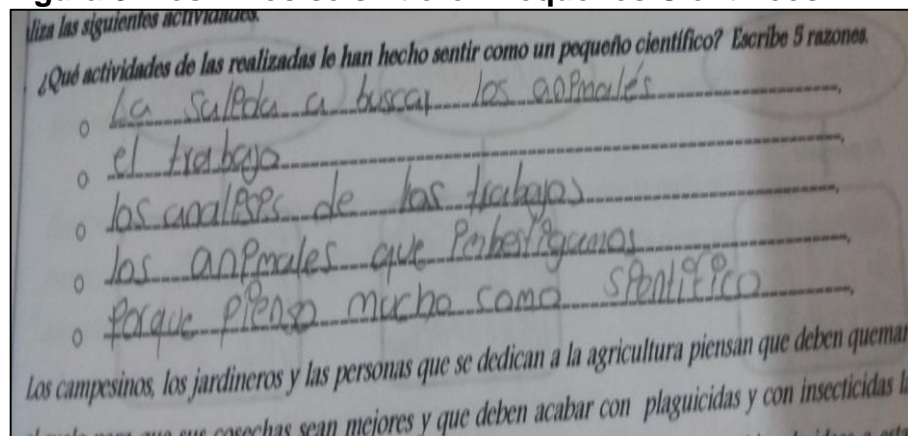 aliza las siguientes actividades.
¿Qué actividades de las realizadas le han hecho sentir como un pequeño científico? Escribe 5 razones.
La salida a buscar los animales
el trabajo
los analises de los trabajos
los animales que inbestigamos
porque pienso mucho como sientifico
Los campesinos, los jardineros y las personas que se dedican a la agricultura piensan que deben quemar
que sus cosechas sean mejores y que deben acabar con plaguicidas y con insecticidas